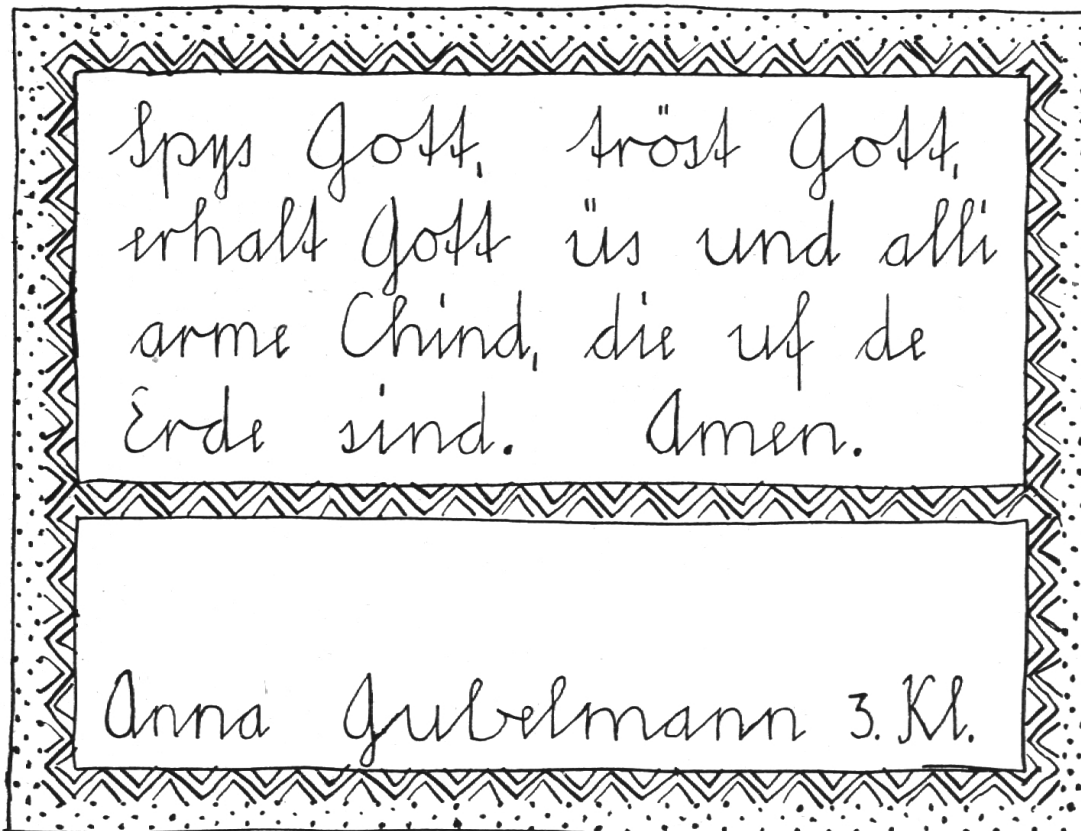 Spys Gott, tröst Gott,
erhalt Gott üs und alli
arme Chind, die uf de
Erde sind. Amen.
Anna Gubelmann 3. Kl.